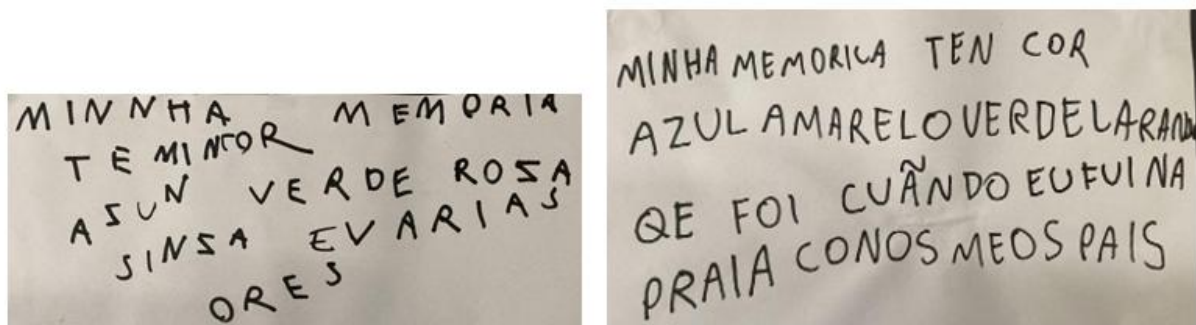 MINNHA MEMORIA
TE MINCOR
ASUN VERDE ROSA
SINSA EVARIAS
ORES
MINHA MEMORICA TEN COR
AZUL AMARELO VERDE LARANJ
QE FOI CUÃNDO EU FUI NA
PRAIA CONOS MEOS PAIS